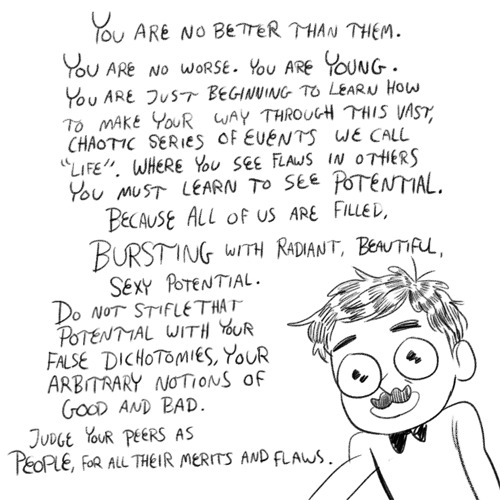 You are no better than them.
You are no worse. You are Young.
You are just beginning to learn how
to make your way through this vast,
chaotic series of events we call
"life". Where you see flaws in others
you must learn to see potential.
Because all of us are filled,
bursting with radiant, beautiful,
sexy potential.
Do not stifle that
potential with your
false dichotomies, your
arbitrary notions of
good and bad.
Judge your peers as
people, for all their merits and flaws.